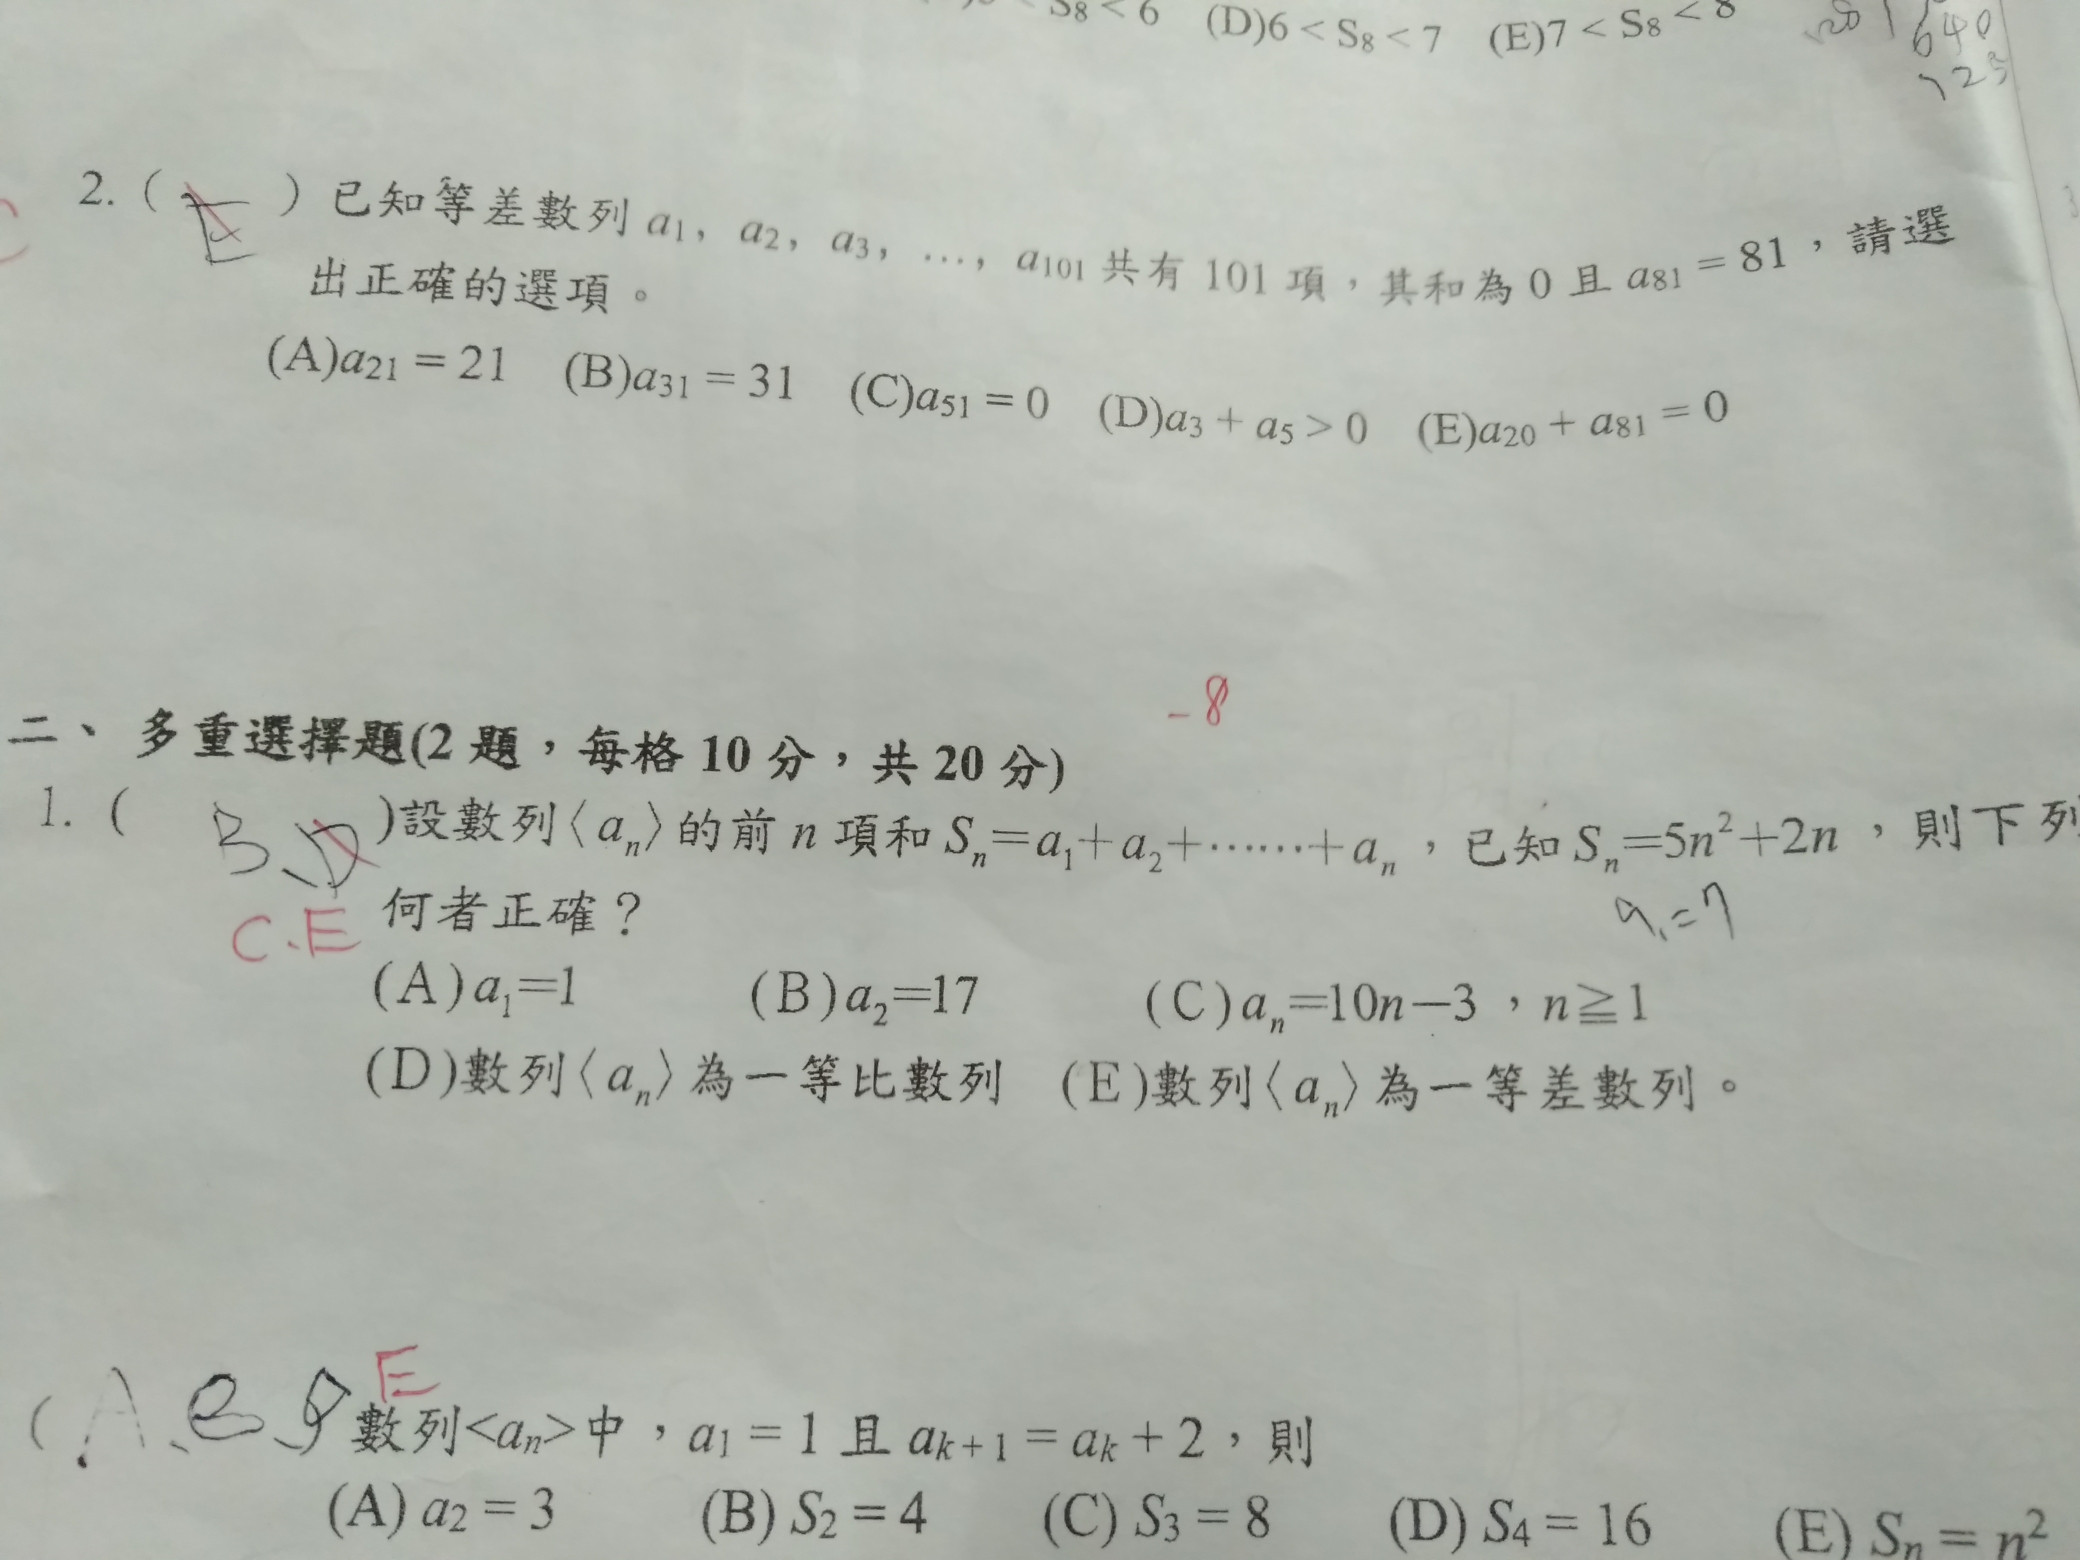 S8 < 6 (D)6 < S8 < 7 (E)7 < S8 < 8
640
125
2. ( E ) 已知等差數列 a1, a2, a3, …, a101 共有 101 項，其和為 0 且 a81 = 81，請選
出正確的選項。
(A)a21 = 21 (B)a31 = 31 (C)a51 = 0 (D)a3 + a5 > 0 (E)a20 + a81 = 0
-8
二、多重選擇題(2 題，每格 10 分，共 20 分)
1. ( B、D )設數列〈an〉的前 n 項和 Sn=a1+a2+……+an，已知 Sn=5n²+2n，則下列
C.E 何者正確？
a1=7
(A)a1=1 (B)a2=17 (C)an=10n−3，n≧1
(D)數列〈an〉為一等比數列 (E)數列〈an〉為一等差數列。
E
( A、B、D 數列<an>中，a1 = 1 且 ak+1 = ak + 2，則
(A) a2 = 3 (B) S2 = 4 (C) S3 = 8 (D) S4 = 16 (E) Sn = n²